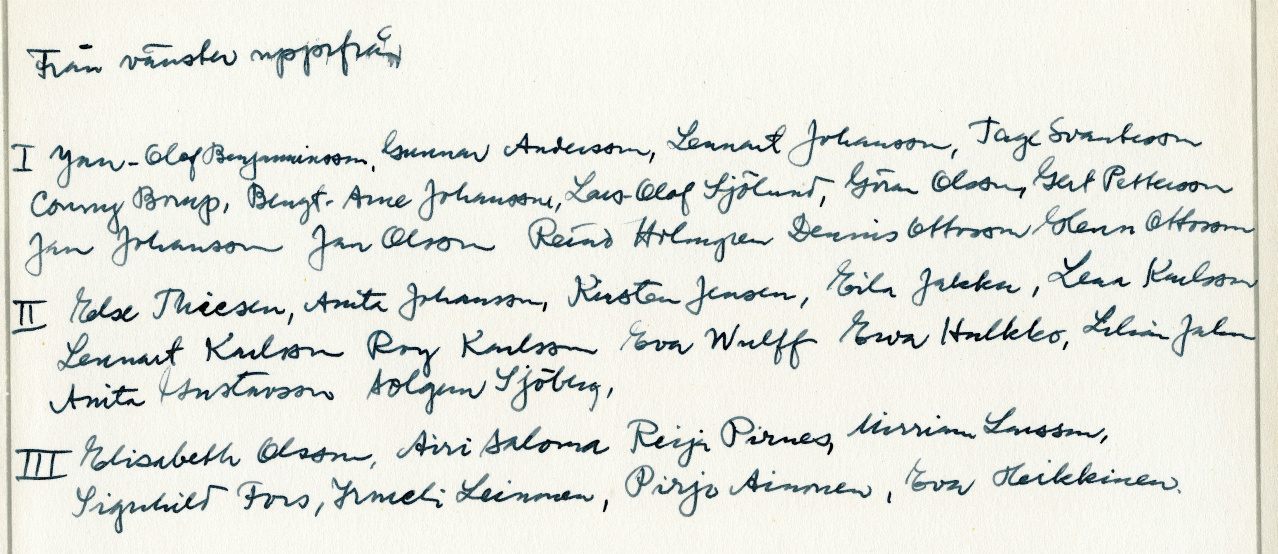 Från vänster uppifrån
I Yan-Olof Benjaminsson, Gunnar Andersson, Lennart Johansson, Tage Svantesson
Conny Borup, Bengt-Arne Johansson, Lars-Olof Sjölund, Göran Olsson, Gert Pettersson
Jan Johansson Jan Olsson Reino Holmgren Dennis Ottosson Glenn Ottosson
II Else Thiesen, Anita Johansson, Kirsten Jensen, Eila Jakku, Lena Karlsson
Lennart Karlsson Roy Karlsson Eva Wulff Ewa Hulkko, Lilian
Anita Gustavsson Solgun Sjöberg,
III Elisabeth Olsson, Airi Saloma Reija Pirnes, Mirriam Larsson,
Signhild Fors, Irmeli Leinonen, Pirjo Ainonen, Eva Heikkinen.